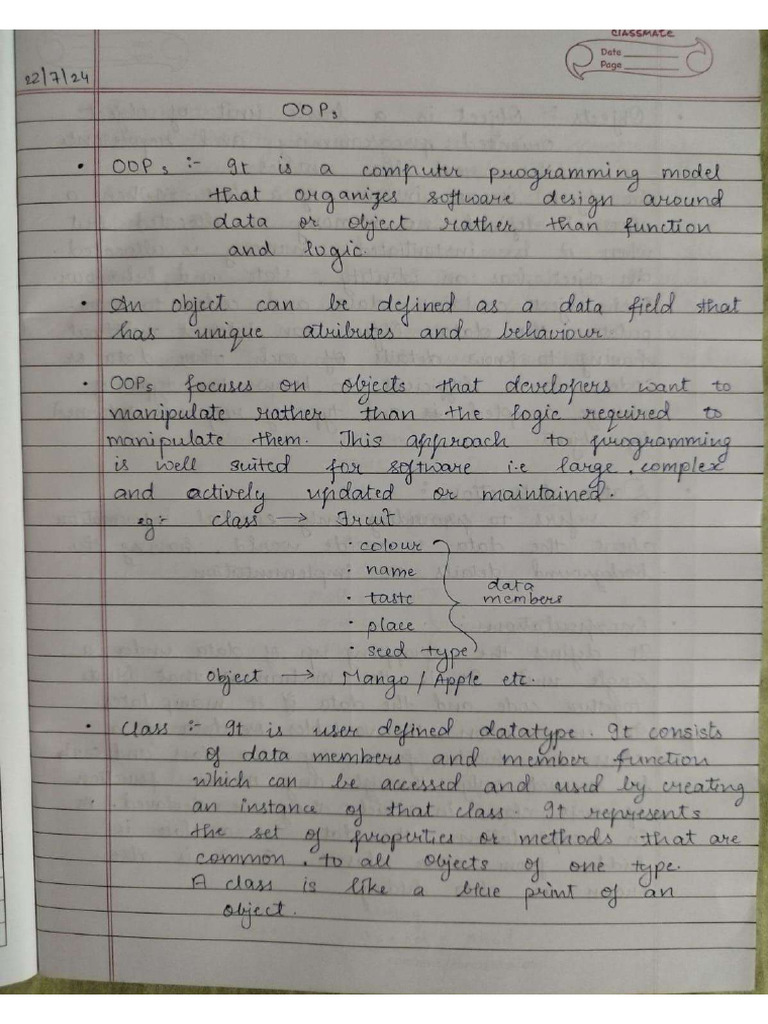 CLASSMATE
Date
Page
22/7/24
OOPs
• OOPs :- It is a computer programming model
that organizes software design around
data or object rather than function
and logic.
• An object can be defined as a data field that
has unique atributes and behaviour
• OOPs focuses on objects that developers want to
manipulate rather than the logic required to
manipulate them. This approach to programming
is well suited for software i.e large, complex
and actively updated or maintained.
eg:- class → Fruit
• colour
• name
data
• taste
members
• place
• seed type
object → Mango / Apple etc.
• Class :- It is user defined datatype. It consists
of data members and member function
which can be accessed and used by creating
an instance of that class. It represents
the set of properties or methods that are
common, to all objects of one type.
A class is like a blue print of an
object.